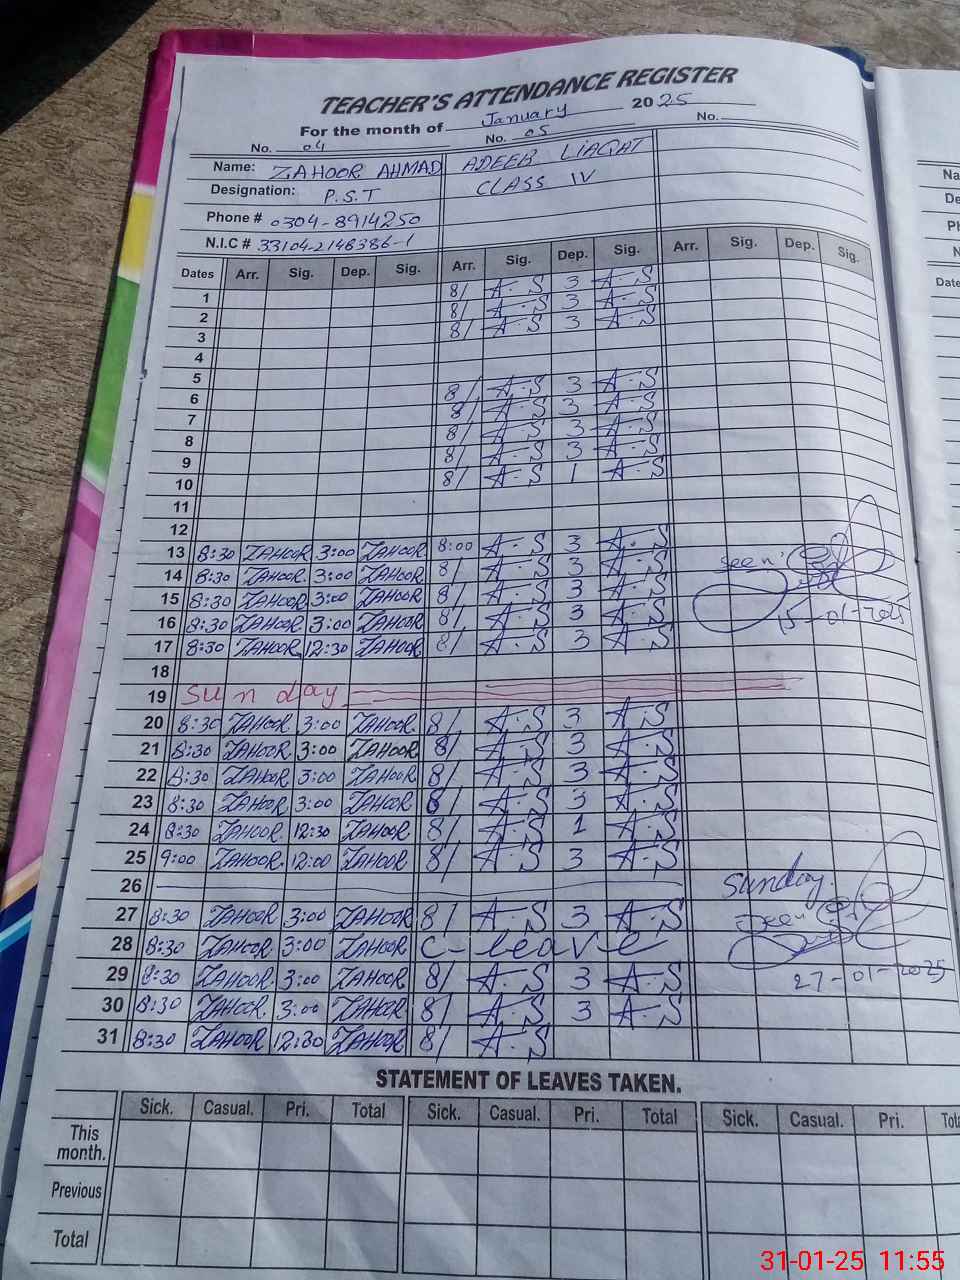 TEACHER'S ATTENDANCE REGISTER
For the month of January 2025
No. 04 No. 05 No.
Name: ZAHOOR AHMAD ADEEB LIAQAT
Designation: P.S.T CLASS IV
Phone # 0304-8914250
N.I.C # 33104-2146386-1
Dates Arr. Sig. Dep. Sig. Arr. Sig. Dep. Sig. Arr. Sig. Dep. Sig.
1 8/ A.S 3 A.S
2 8/ A.S 3 A.S
3 8/ A.S 3 A.S
4
5
6 8/ A.S 3 A.S
7 8/ A.S 3 A.S
8 8/ A.S 3 A.S
9 8/ A.S 3 A.S
10 8/ A.S 1 A.S
11
12
13 8:30 ZAHOOR 3:00 ZAHOOR 8:00 A.S 3 A.S
14 8:30 ZAHOOR 3:00 ZAHOOR 8/ A.S 3 A.S seen
15 8:30 ZAHOOR 3:00 ZAHOOR 8/ A.S 3 A.S
16 8:30 ZAHOOR 3:00 ZAHOOR 8/ A.S 3 A.S 15-01-2025
17 8:30 ZAHOOR 12:30 ZAHOOR 8/ A.S 3 A.S
18
19 Sunday
20 8:30 ZAHOOR 3:00 ZAHOOR 8/ A.S 3 A.S
21 8:30 ZAHOOR 3:00 ZAHOOR 8/ A.S 3 A.S
22 8:30 ZAHOOR 3:00 ZAHOOR 8/ A.S 3 A.S
23 8:30 ZAHOOR 3:00 ZAHOOR 8/ A.S 3 A.S
24 8:30 ZAHOOR 12:30 ZAHOOR 8/ A.S 1 A.S
25 9:00 ZAHOOR 12:00 ZAHOOR 8/ A.S 3 A.S
26 Sunday
27 8:30 ZAHOOR 3:00 ZAHOOR 8/ A.S 3 A.S seen
28 8:30 ZAHOOR 3:00 ZAHOOR C-leave
29 8:30 ZAHOOR 3:00 ZAHOOR 8/ A.S 3 A.S 27-01-2025
30 8:30 ZAHOOR 3:00 ZAHOOR 8/ A.S 3 A.S
31 8:30 ZAHOOR 12:30 ZAHOOR 8/ A.S
STATEMENT OF LEAVES TAKEN.
Sick. Casual. Pri. Total Sick. Casual. Pri. Total Sick. Casual. Pri.
This month.
Previous
Total
31-01-25 11:55